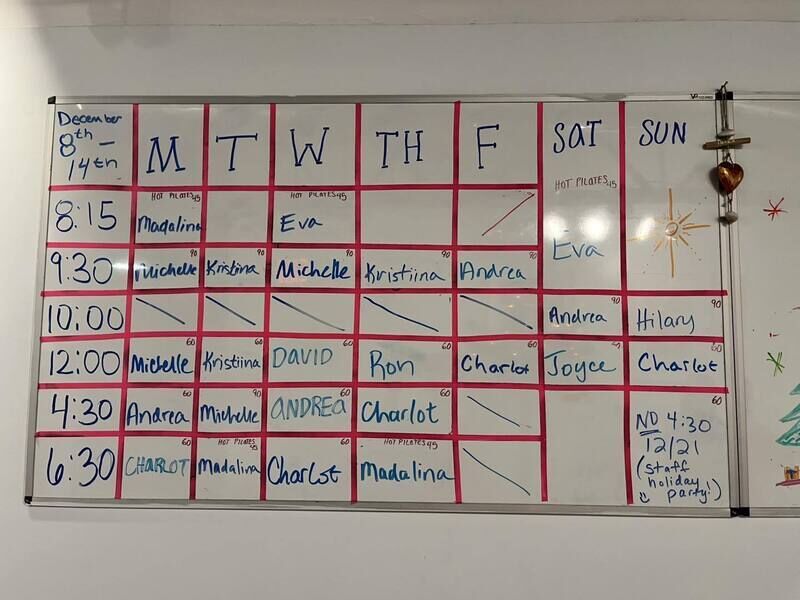 December 8th - 14th M T W TH F SAT SUN
HOT PILATES 45 HOT PILATES 45 HOT PILATES 45
8:15 Madalina Eva Eva
90 90 90 90 90
9:30 Michelle Kristina Michelle Kristiina Andrea
90 90
10:00 Andrea Hilary
60 60 60 60 60 60
12:00 Michelle Kristiina DAVID Ron Charlot Joyce Charlot
60 90 60 60 60
4:30 Andrea Michelle ANDREA Charlot
NO 4:30
12/21
(staff
holiday
party!)
60 HOT PILATES 45 60 HOT PILATES 45
6:30 CHARLOT Madalina Charlot Madalina